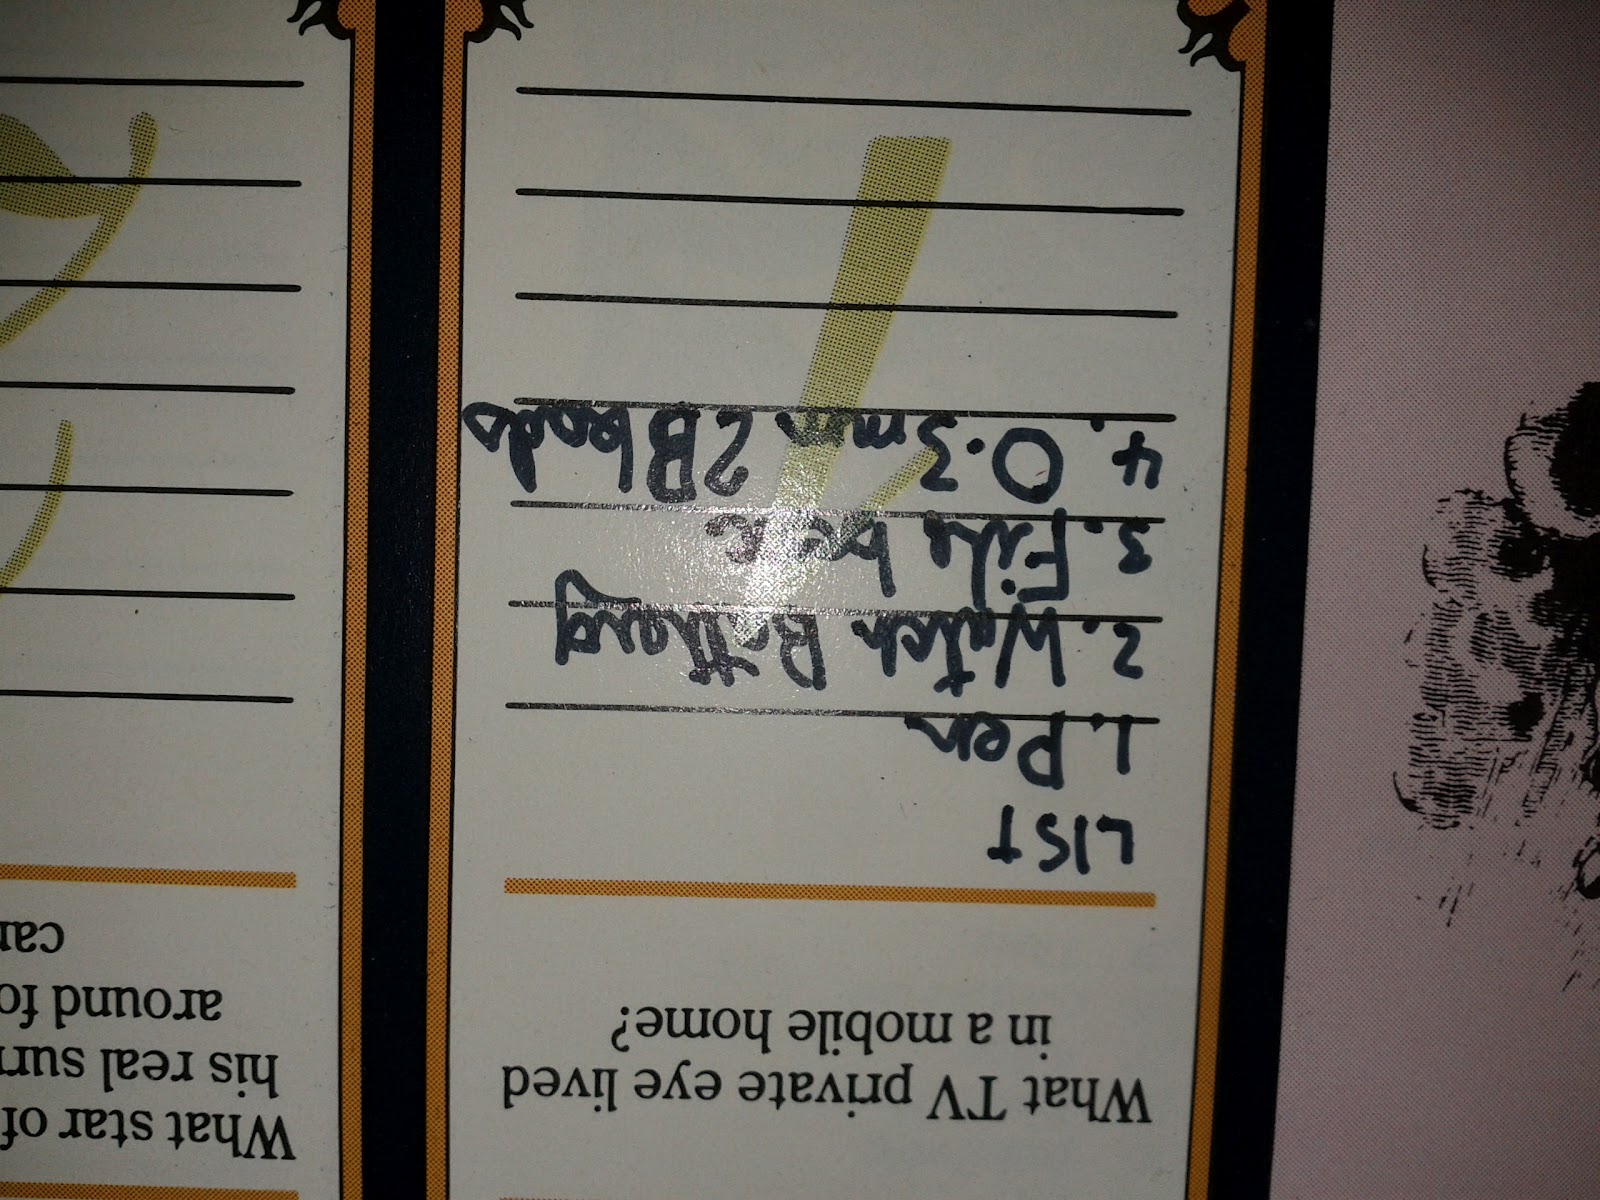 What star of
his real surn
around fo
car
What TV private eye lived
in a mobile home?
LIST
1. Pen
2. Watch Battery
3. File
4. 0.3mm 2B leads